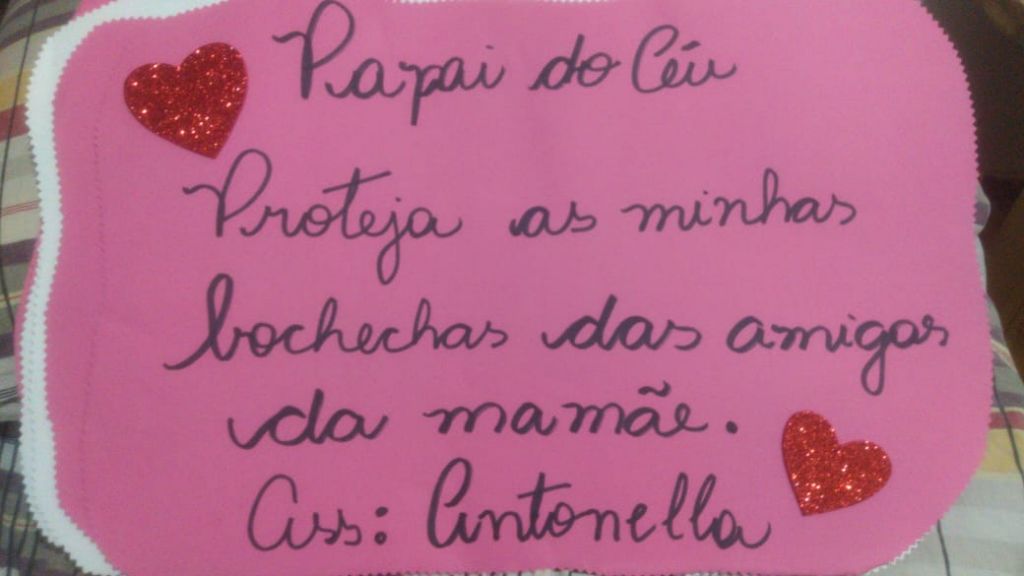 Papai do Céu
Proteja as minhas
bochechas das amigas
da mamãe.
Ass: Antonella